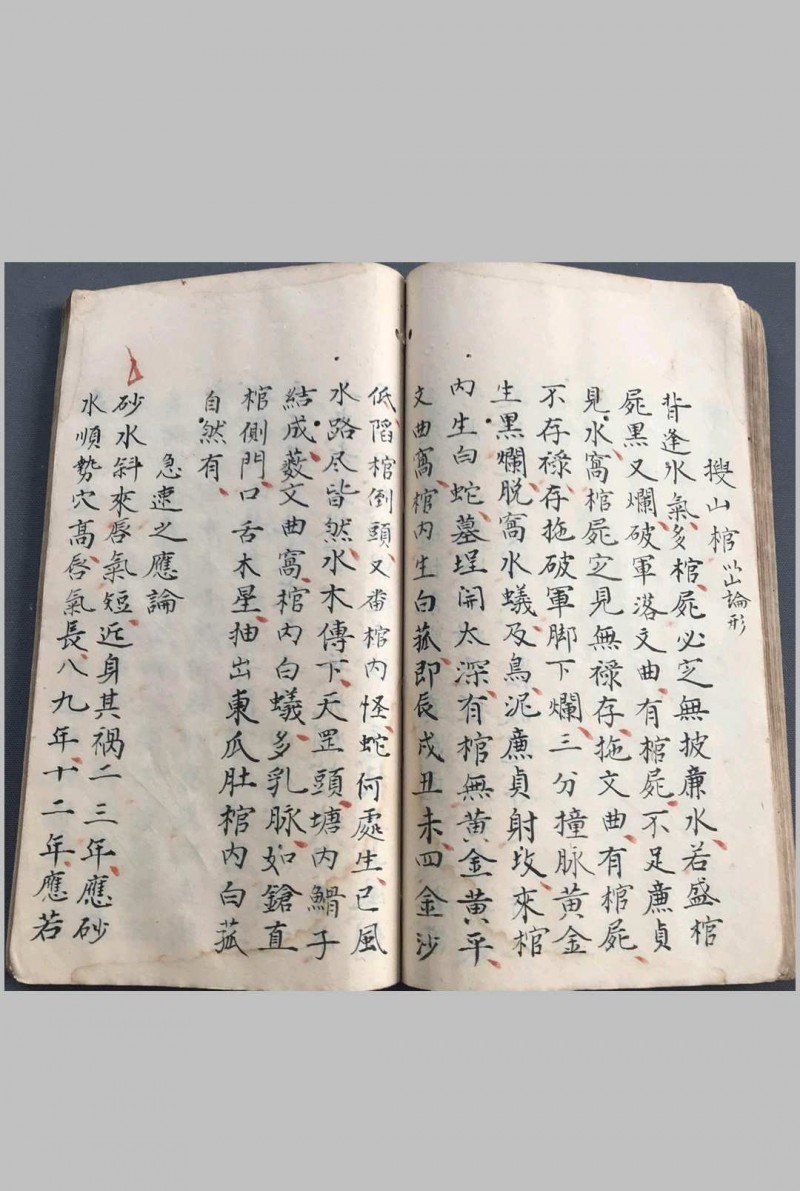 搜山棺以山論形
背逢水氣多棺屍必定無披廉水若盛棺
屍黑又爛破軍落文曲有棺屍不足廉貞
見水窩棺屍定見無祿存拖文曲有棺屍
不存祿存拖破軍脚下爛三分撞脉黃金
生黑爛脱窩水蟻及鳥泥廉貞射坟來棺
內生白蛇墓埕開太深有棺無黃金黃平
文曲窩棺內生白菰即辰戌丑未四金沙
低陷棺倒頭又番棺內怪蛇何處生已風
水路尽皆然水木傳下天罡頭塘內鰌子
結成薮文曲窩棺內白蟻多乳脉如鎗直
棺側門口舌木星抽出東瓜肚棺內白菰
自然有
急速之應論
砂水斜來唇氣短近身其禍二三年應砂
水順勢穴高唇氣長八九年十二年應若